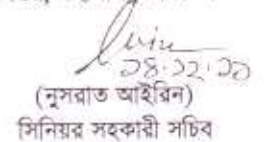 ২৪.১২.২০
(নুসরাত আইরিন)
সিনিয়র সহকারী সচিব